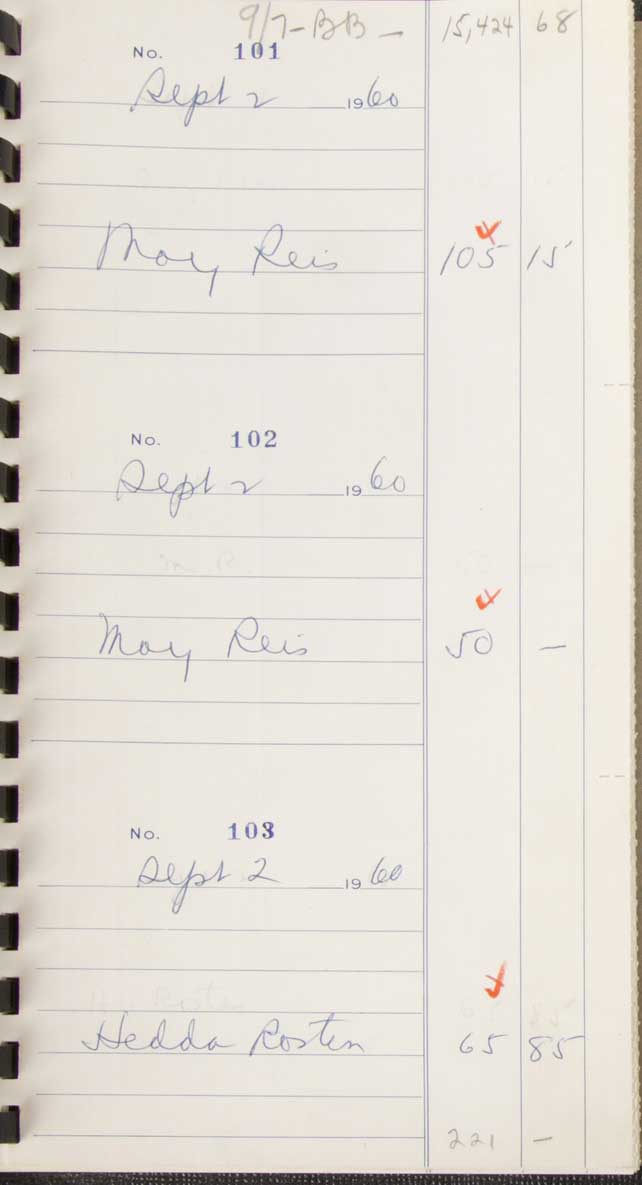 9/7-BB- 15,424 68
No. 101
Sept 2 1960
May Reis 105 15
No. 102
Sept 2 1960
May Reis 50 —
No. 103
Sept 2 1960
Hedda Rosten 65 85
221 —